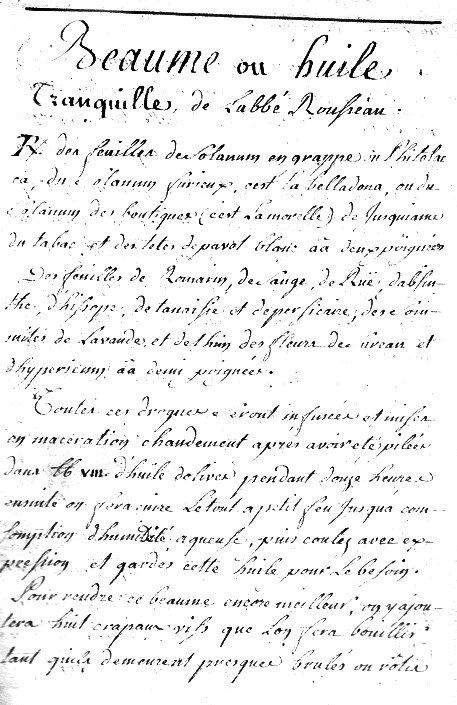 Beaume ou huile
Tranquille, de Labbé Rousseau.
R. des feuilles de Solanum en grappe in Phitolac
ca, du solanum furieux, cest la belladona, ou du
solanum des boutiques (cest Lamorelle) de Jusquiame
du tabac et des tetes de pavot blanc āā deux poignées
Des feuilles de Romarin, de sauge, de Rüe, dabsin-
the, d'hisope, de tanaisie et de persicaire, des som-
mites de Lavande et de thim des fleurs de sureau et
d'hypericum āā demi poignées.
Toutes ces drogues seront infusées et mises
en maceration chaudement aprés avoir eté pilées
dans ℔ VIII. d'huile dolives pendant douze heures
ensuite on fera cuire Le tout a petit feu Jusqua con-
somption d'humidité aqueuse, puis coulez avec ex-
pression et gardes cette huile pour Le besoin.
Pour rendre ce beaume encore meilleur, on y ajou-
tera huit crapaux vifs que Lon fera bouillir
tant quils demeurent presques brulés ou rôtis